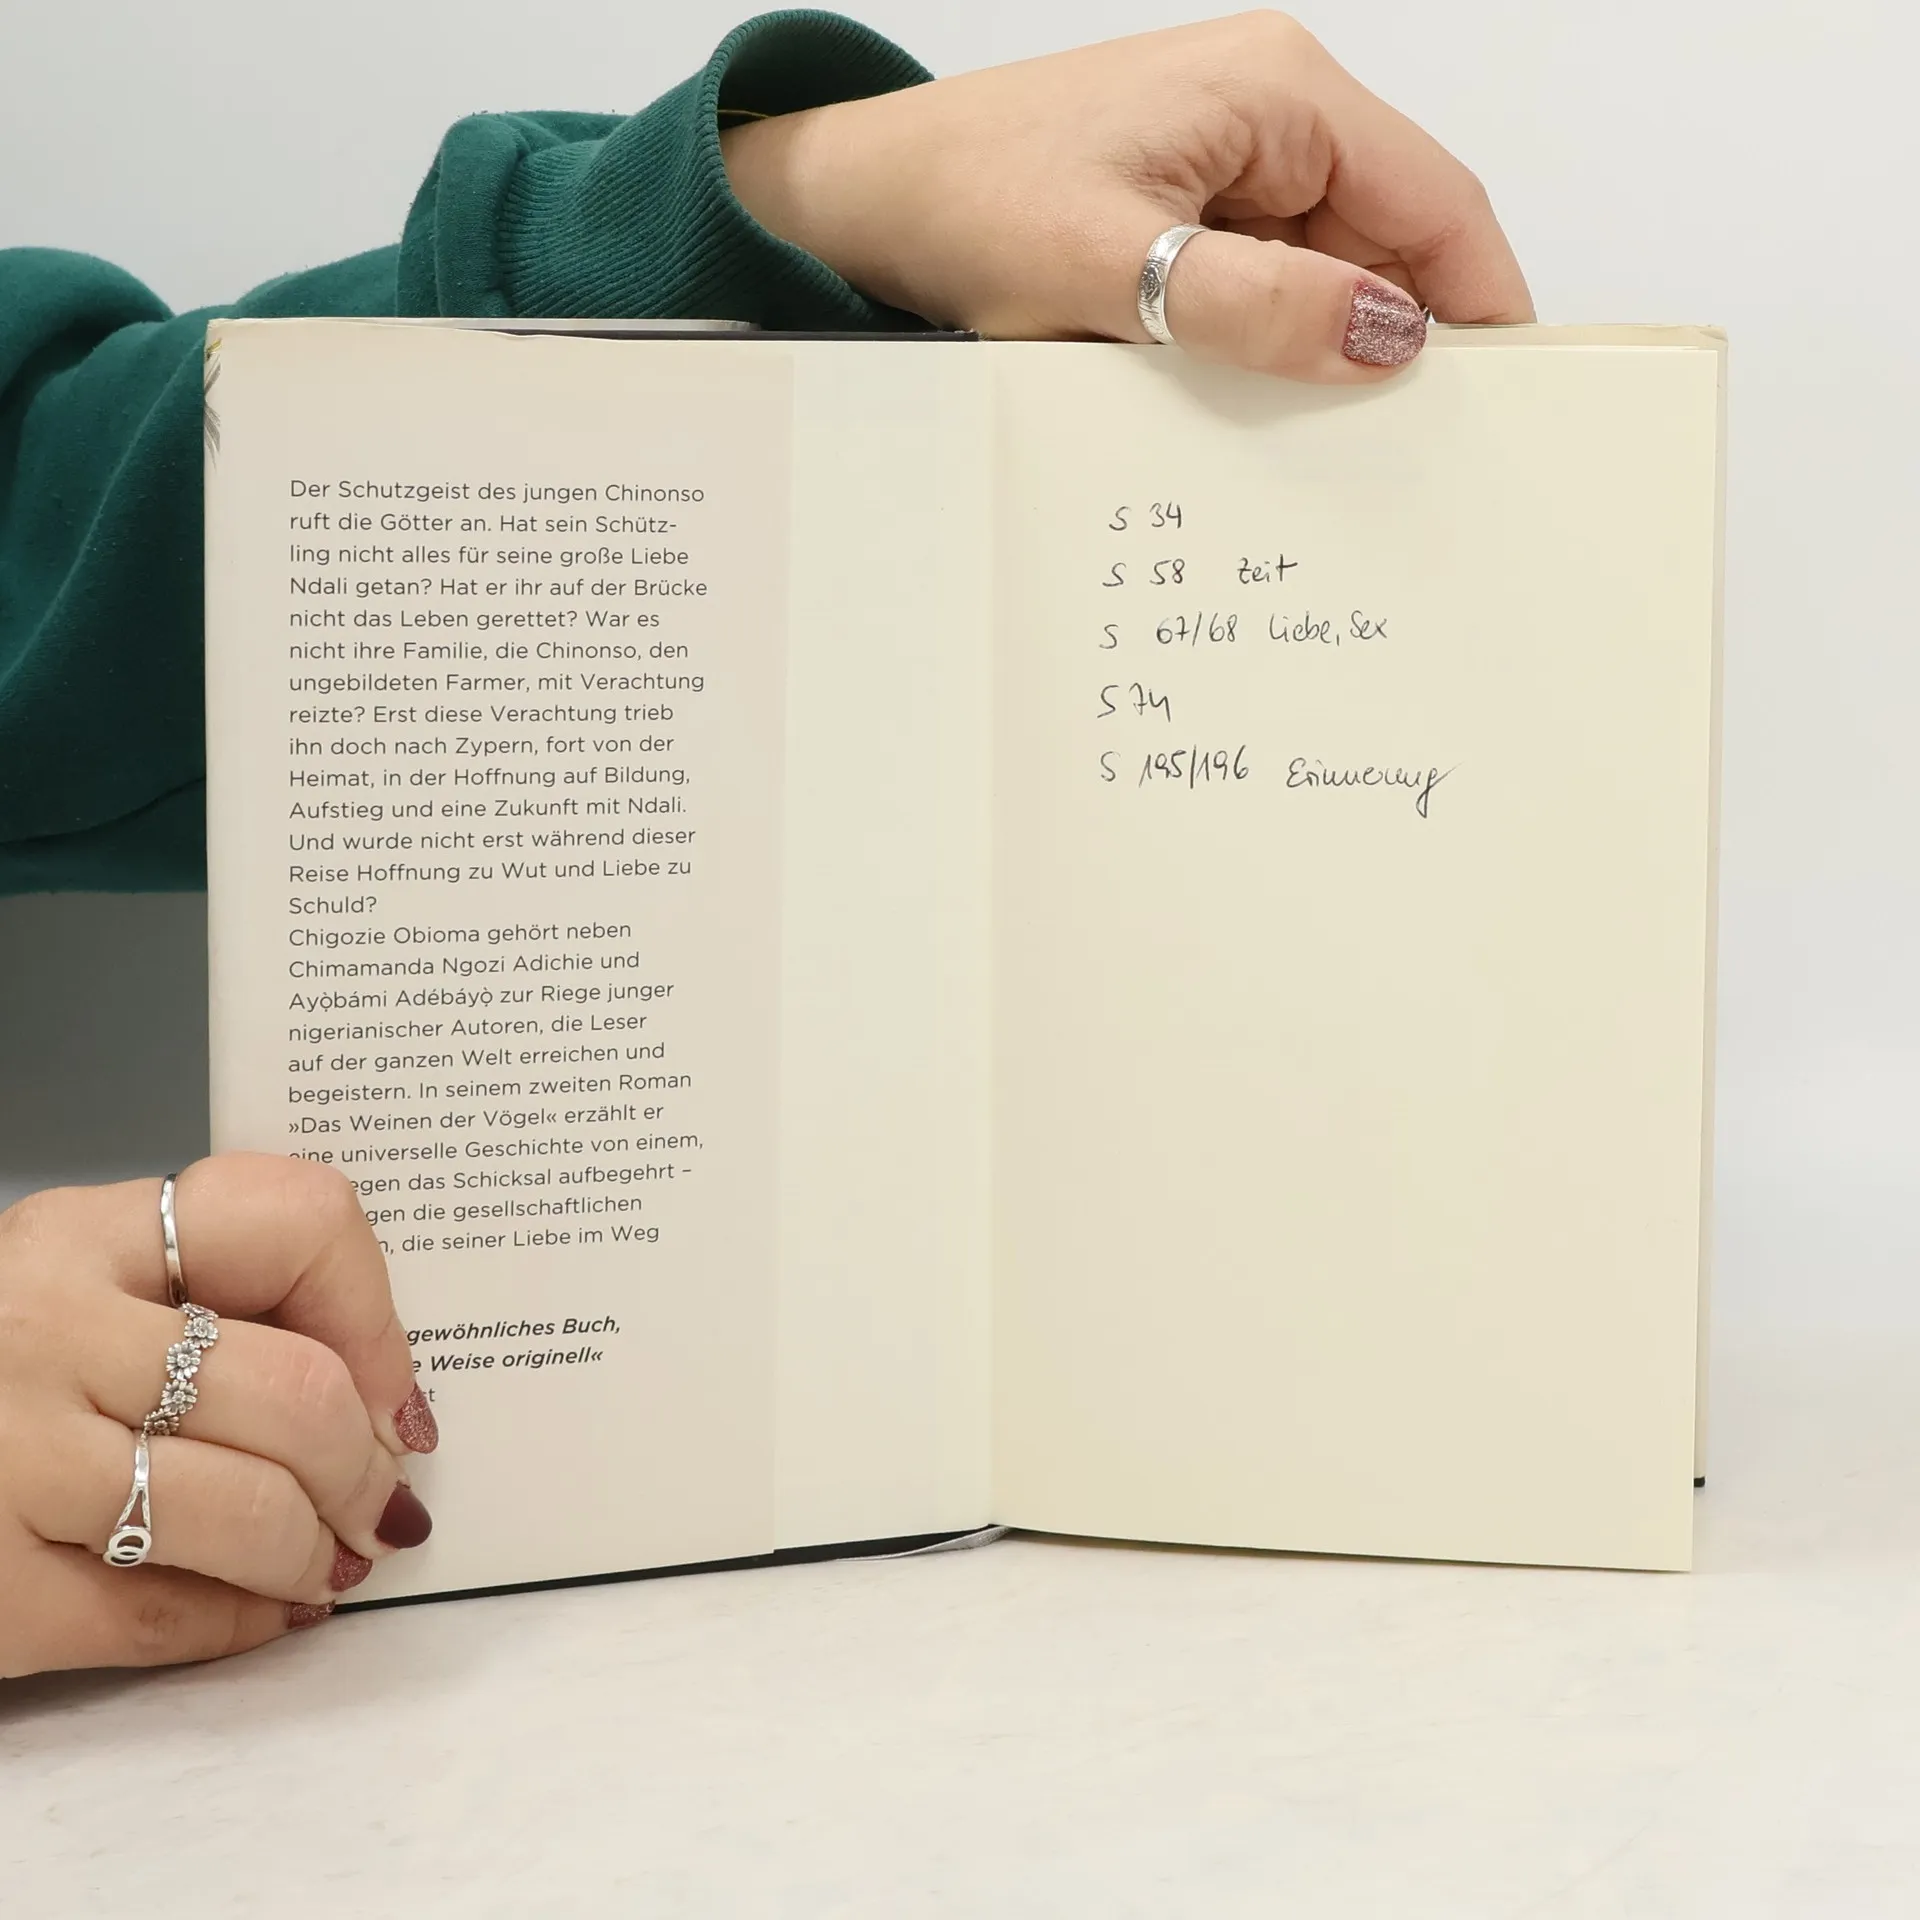 Der Schutzgeist des jungen Chinonso
ruft die Götter an. Hat sein Schütz-
ling nicht alles für seine große Liebe
Ndali getan? Hat er ihr auf der Brücke
nicht das Leben gerettet? War es
nicht ihre Familie, die Chinonso, den
ungebildeten Farmer, mit Verachtung
reizte? Erst diese Verachtung trieb
ihn doch nach Zypern, fort von der
Heimat, in der Hoffnung auf Bildung,
Aufstieg und eine Zukunft mit Ndali.
Und wurde nicht erst während dieser
Reise Hoffnung zu Wut und Liebe zu
Schuld?
Chigozie Obioma gehört neben
Chimamanda Ngozi Adichie und
Ayọ̀bámi Adébáyọ̀ zur Riege junger
nigerianischer Autoren, die Leser
auf der ganzen Welt erreichen und
begeistern. In seinem zweiten Roman
»Das Weinen der Vögel« erzählt er
eine universelle Geschichte von einem,
das Schicksal aufbegehrt –
die gesellschaftlichen
, die seiner Liebe im Weg
gewöhnliches Buch,
Weise originell«
S 34
S 58 Zeit
S 67/68 Liebe, Sex
S 74
S 195/196 Erinnerung